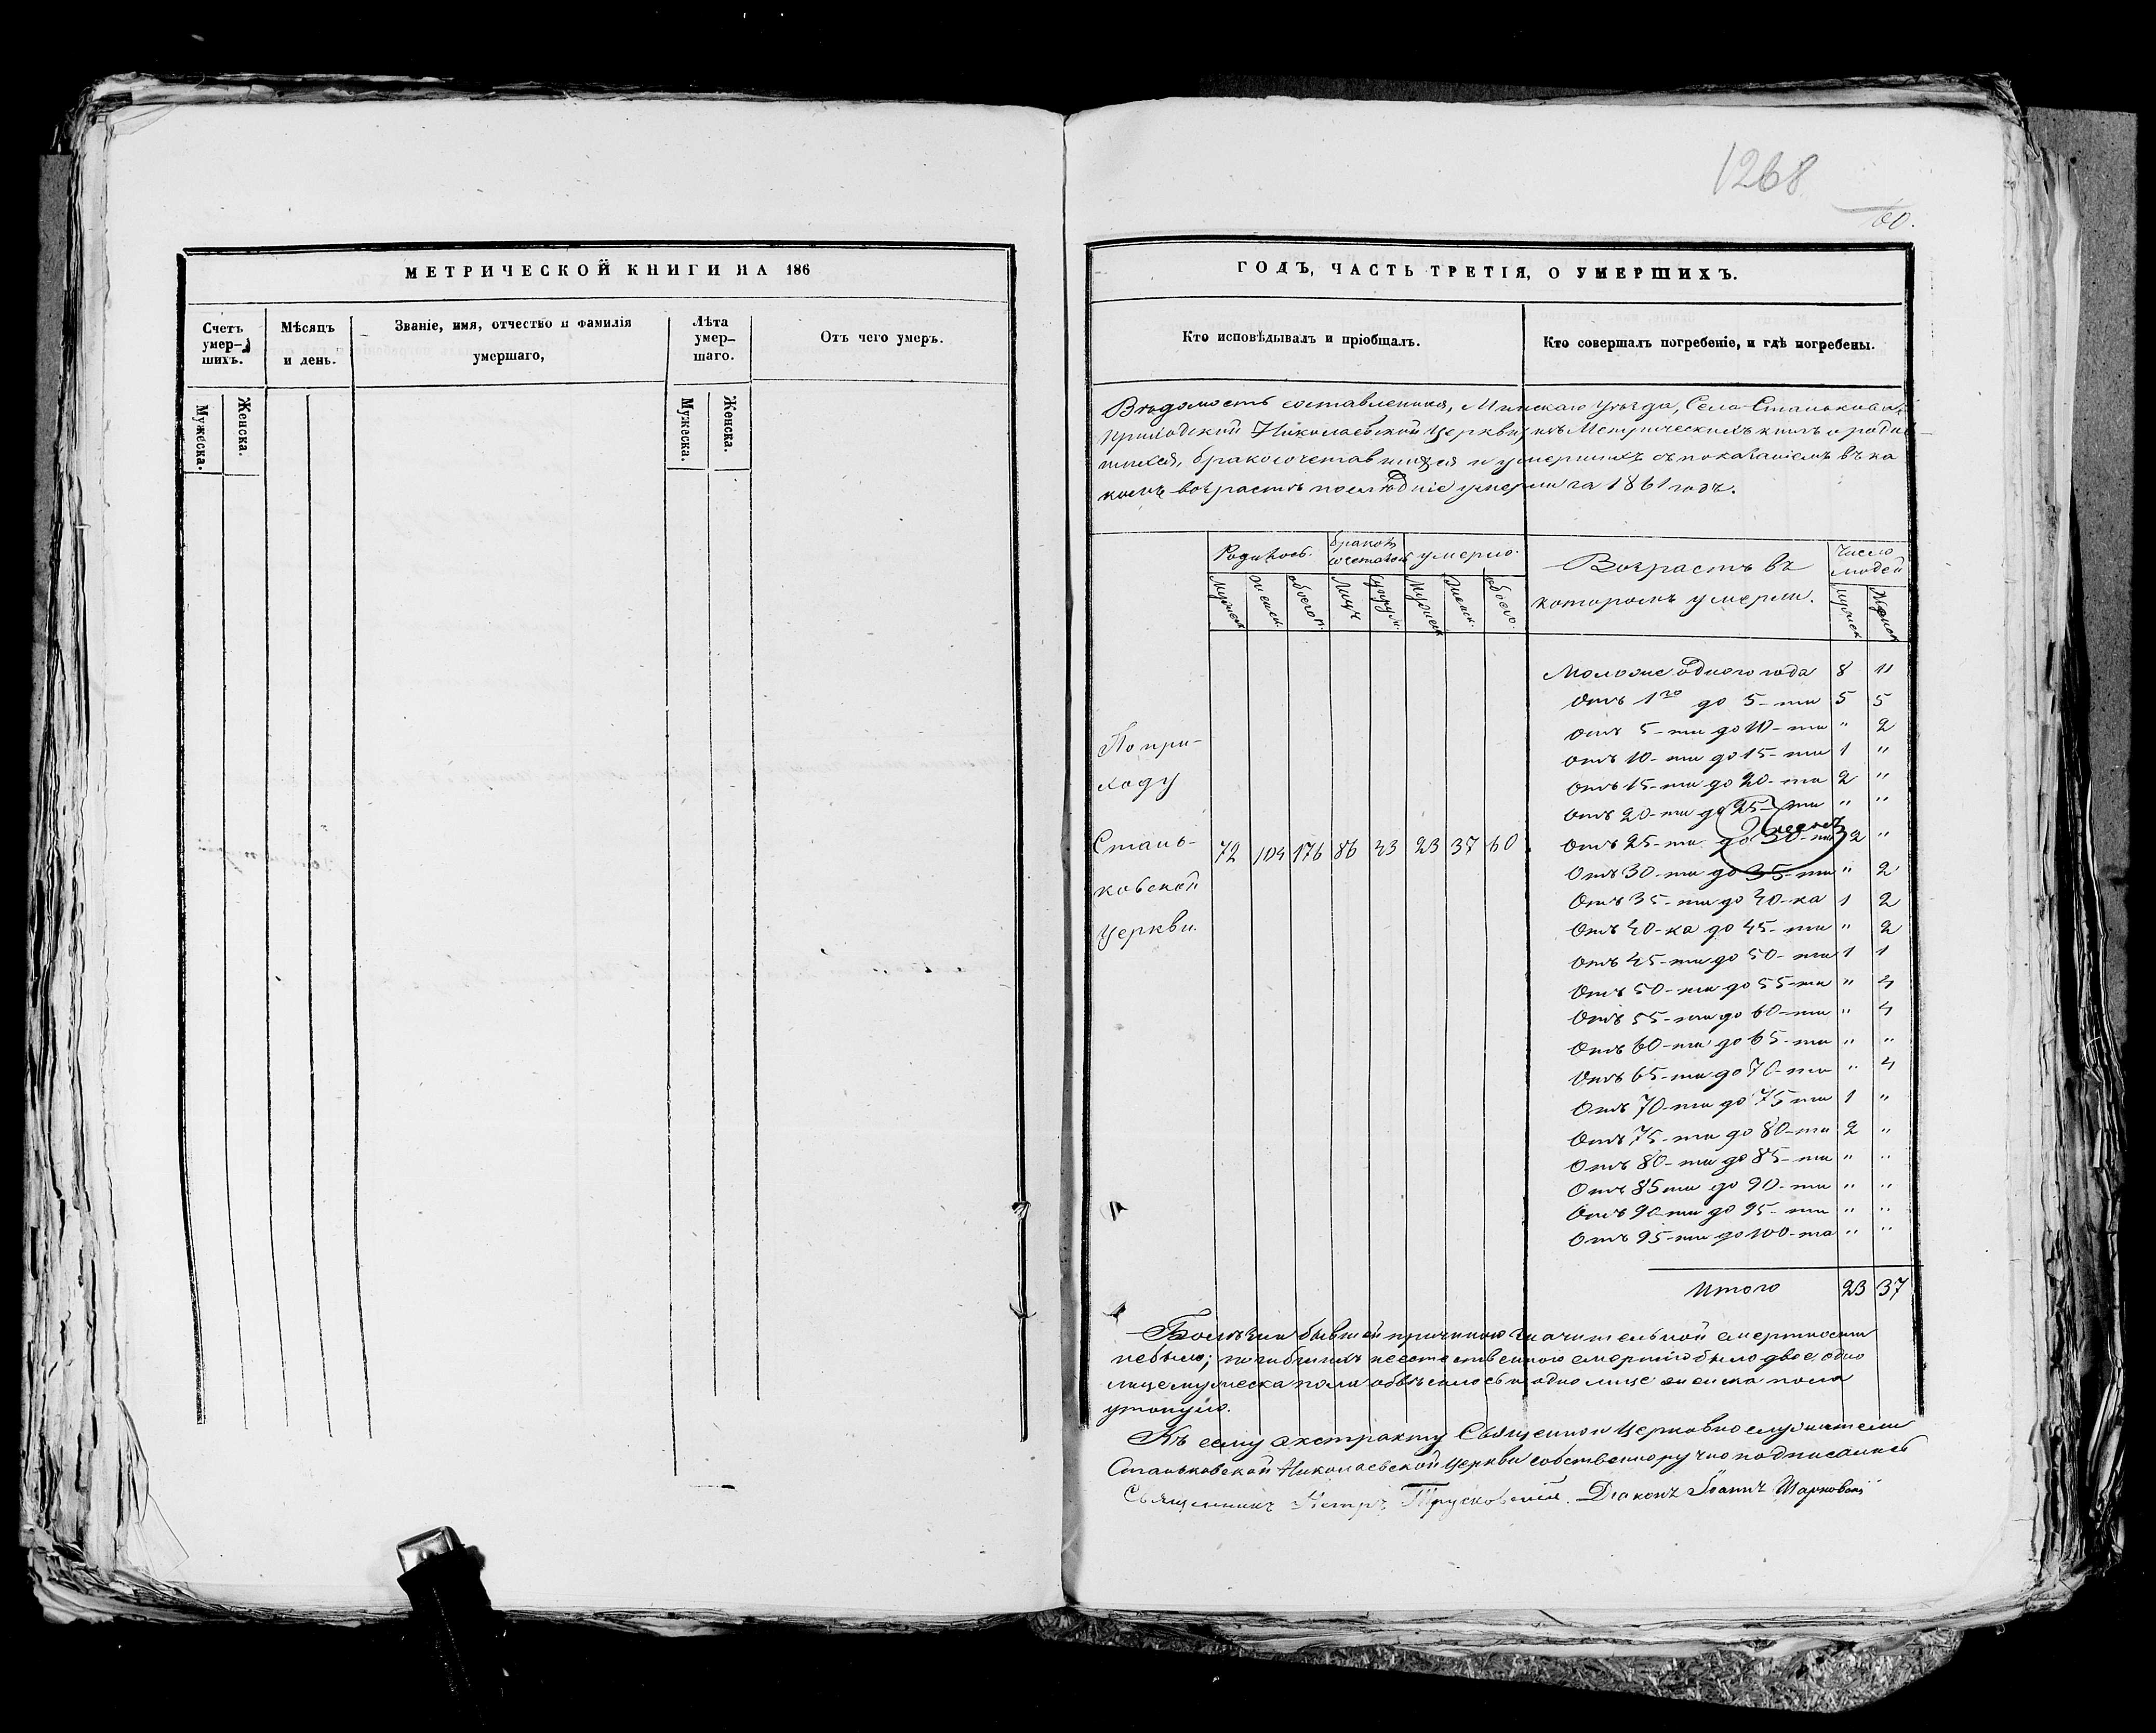 1268
60.
МЕТРИЧЕСКОЙ КНИГИ НА 186
Счетъ умер-шихъ.
Мѣсяцъ и день.
Званіе, имя, отчество и фамилія умершаго,
Лѣта умер-шаго.
Отъ чего умеръ.
Мужеска.
Женска.
Мужеска.
Женска.
ГОДЪ, ЧАСТЬ ТРЕТІЯ, О УМЕРШИХЪ.
Кто исповѣдывалъ и пріобщалъ.
Кто совершалъ погребеніе, и гдѣ погребены.
Вѣдомость составленная, Минскаго Уѣзда, Села Станькова,
приходской Николаевской Церкви, изъ Метрическихъ книгъ о родив-
шихся, бракосочетавшихся и умершихъ съ показаніемъ въ ка
комъ возрастѣ послѣдніе умерли за 1861 годъ.
Родилось. умерло.
Мужеск Женск. обоего п. Лицъ Мужеск Женск. обоего.
Возрастъ въ
которомъ умерли.
Число
людей
Мужеск Женск
По при-
ходу
Стань-
ковской
Церкви.
72 104 176 86 43 23 37 60
Моложе одного года 8 11
Отъ 1го до 5-ти 5 5
Отъ 5-ти до 10-ти " 2
Отъ 10-ти до 15-ти 1 "
Отъ 15-ти до 20-ти 2 "
Отъ 20-ти до 25-ти " "
Отъ 25-ти до 30-ти 2 "
Отъ 30-ти до 35-ти " 2
Отъ 35-ти до 40-ка 1 2
Отъ 40-ка до 45-ти " 2
Отъ 45-ти до 50-ти 1 1
Отъ 50-ти до 55-ти " 4
Отъ 55-ти до 60-ти " 4
Отъ 60-ти до 65-ти " "
Отъ 65-ти до 70-ти " 4
Отъ 70-ти до 75 ти 1 "
Отъ 75-ти до 80-ти 2 "
Отъ 80-ти до 85-ти " "
Отъ 85 ти до 90-ти " "
Отъ 90-ти до 95-ти " "
Отъ 95-ти до 100-та " "
Итого 23 37
Болѣзни бывшей причиною значительной смертности
небыло; погибшихъ неестественною смертію было двое, одно
лице мужеска пола объѣсилось и одно лице женска пола
утонуло.
Къ сему экстракту Священно и Церковнослужители
Станьковской Николаевской Церкви собственноручно подписались
Священникъ Петръ Трусковскій. Діаконъ Іоаннъ Шарковскій